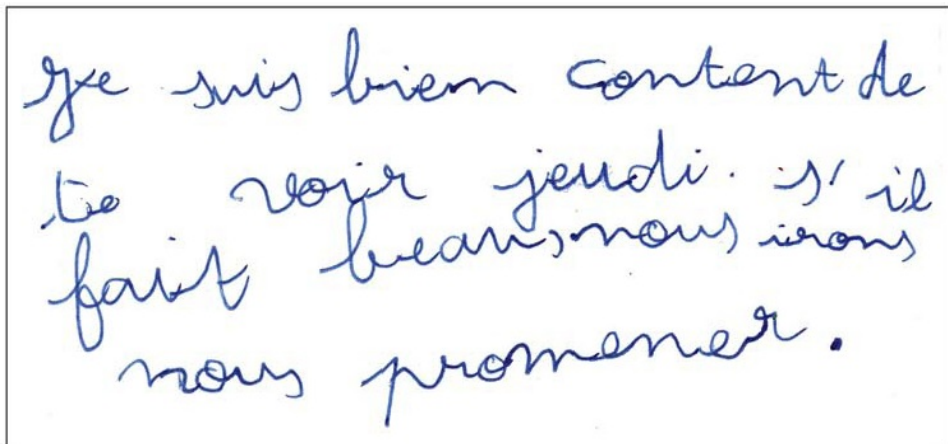 Je suis bien content de
te voir jeudi. s'il
fait beau, nous irons
nous promener.